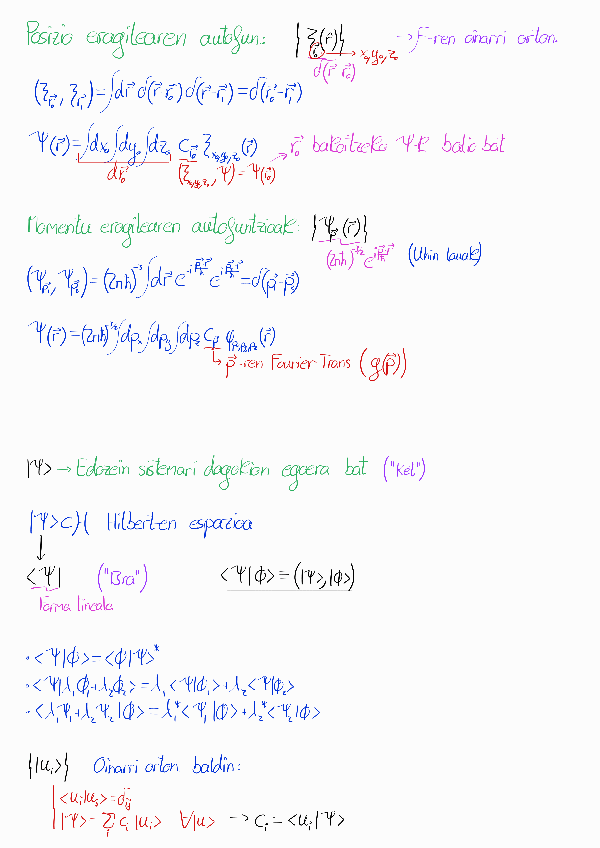 Posizio eragilearen autofun: {ξ_{r⃗₀}(r⃗)} → F-ren oinarri orton.
→ x₀, y₀, z₀
δ(r⃗-r⃗₀)
(ξ_{r⃗₀}, ξ_{r⃗₁}) = ∫dr⃗ δ(r⃗-r⃗₀) δ(r⃗-r⃗₁) = δ(r⃗₀-r⃗₁)
Ψ(r⃗) = ∫dx₀∫dy₀∫dz₀ C_{r⃗₀} ξ_{x₀,y₀,z₀}(r⃗) → r⃗₀ bakoitzeko Ψ-k balio bat
dr⃗₀ (ξ_{x₀,y₀,z₀}, Ψ) = Ψ(r⃗₀)
Momentu eragilearen autofuntzioak: {Ψ_{p⃗}(r⃗)}
(2πħ)^{-3/2} e^{i p⃗·r⃗/ħ} (Uhin lauak)
(Ψ_{p⃗₁}, Ψ_{p⃗₂}) = (2πħ)^{-3} ∫dr⃗ e^{-i p⃗·r⃗/ħ} e^{i p⃗·r⃗/ħ} = δ(p⃗₁-p⃗₂)
Ψ(r⃗) = (2πħ)^{3/2} ∫dpₓ∫dp_y∫dp_z C_p φ_{pₓ,p_y,p_z}(r⃗)
→ p⃗-ren Fourier-Trans (g(p⃗))
|Ψ> → Edozein sistemari dagokion egoera bat ("Ket")
|Ψ> ⊂ H Hilbert-en espazioa
↓
<Ψ| ("Bra") <Ψ|Φ> = (|Ψ>,|Φ>)
Forma lineala
• <Ψ|Φ> = <Φ|Ψ>*
• <Ψ|λ₁Φ₁+λ₂Φ₂> = λ₁<Ψ|Φ₁> + λ₂<Ψ|Φ₂>
• <λ₁Ψ₁+λ₂Ψ₂|Φ> = λ₁*<Ψ₁|Φ> + λ₂*<Ψ₂|Φ>
{|uᵢ>} Oinarri orton baldin:
<uᵢ|uⱼ> = δᵢⱼ
|Ψ> = Σᵢ cᵢ |uᵢ> ∀|u> → cᵢ = <uᵢ|Ψ>